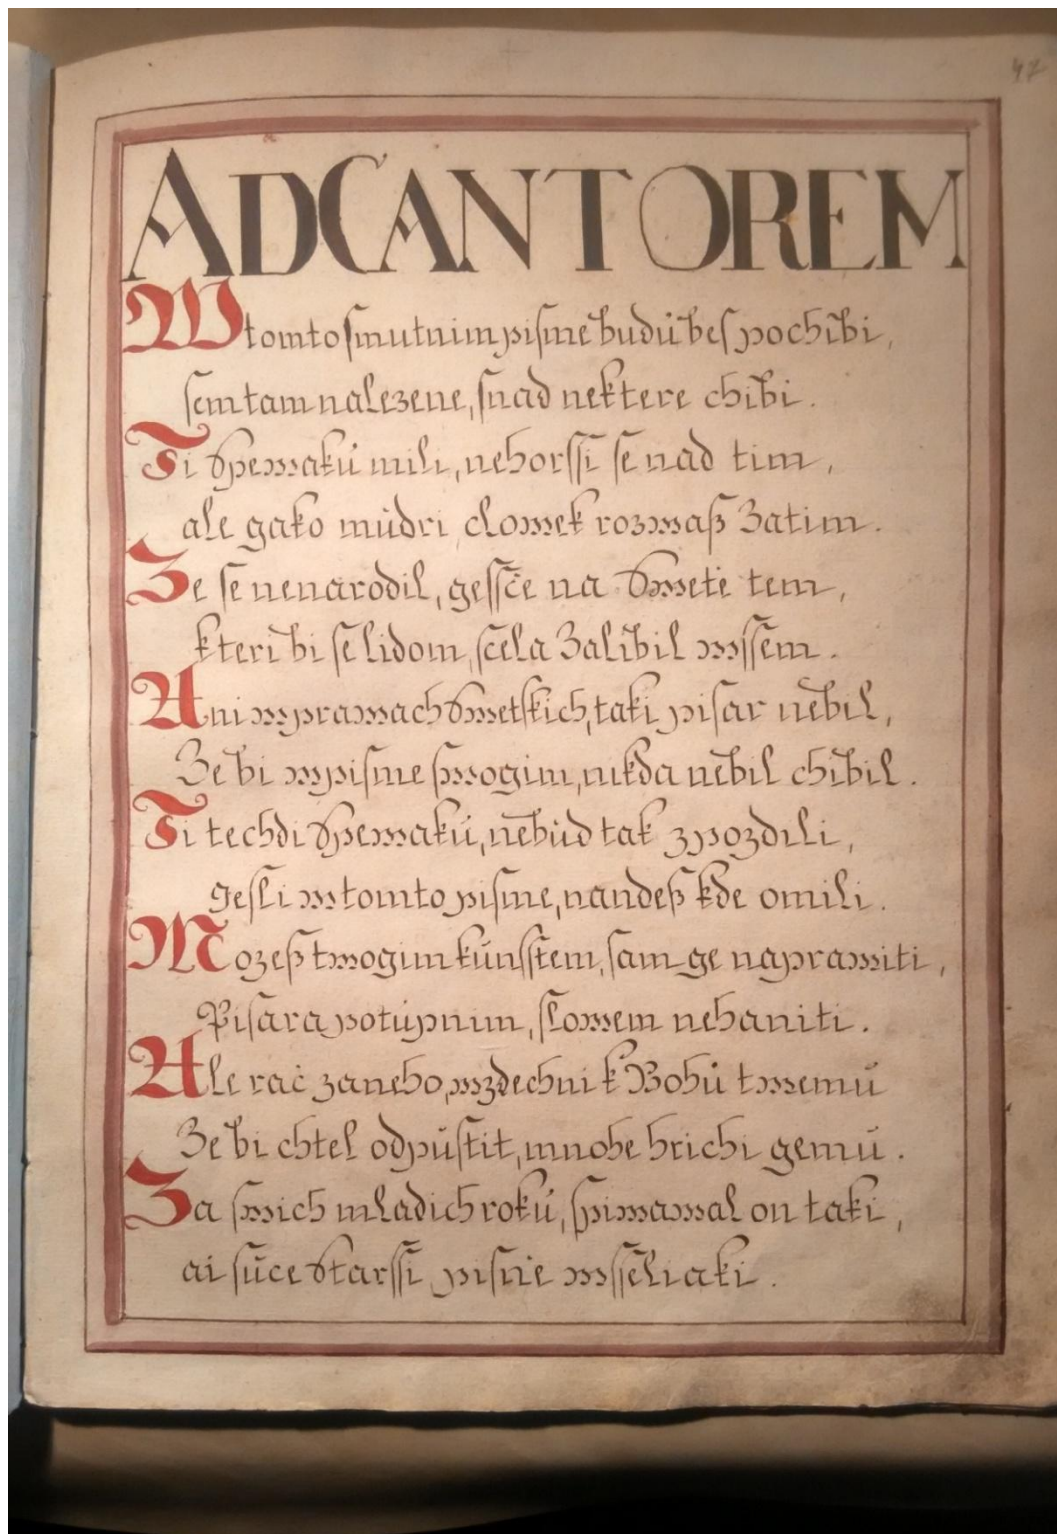 47
AD CANTOREM
W tomto smutnim pisme budu bes pochibi,
sem tam nalezene, snad nektere chibi.
Ti Spewaku mili, nehorssi se nad tim,
ale gako mudri clowek rozwaß Zatim.
Ze se nenarodil, gessče na Swete tem,
kteri bi se lidom, scela Zalibil wssem.
Ani w prawach Swetskich, taki pisar nebil,
Ze bi w pisme swogim, nikda nebil chibil.
Ti techdi Spewaku, nebud tak zpozdili,
gesli w tomto pisme, nandeß kde omili.
Mozeß twogim kunsstem, sam ge naprawiti,
Pisara potupnim, slowem nehaniti.
Ale rač za neho, wzdechni k Bohu twemu
Ze bi chtel odpustit, mnohe hrichi gemu.
Za swich mladich roku, spiwawal on taki,
ai suce Starssi pisne wsseliaki.